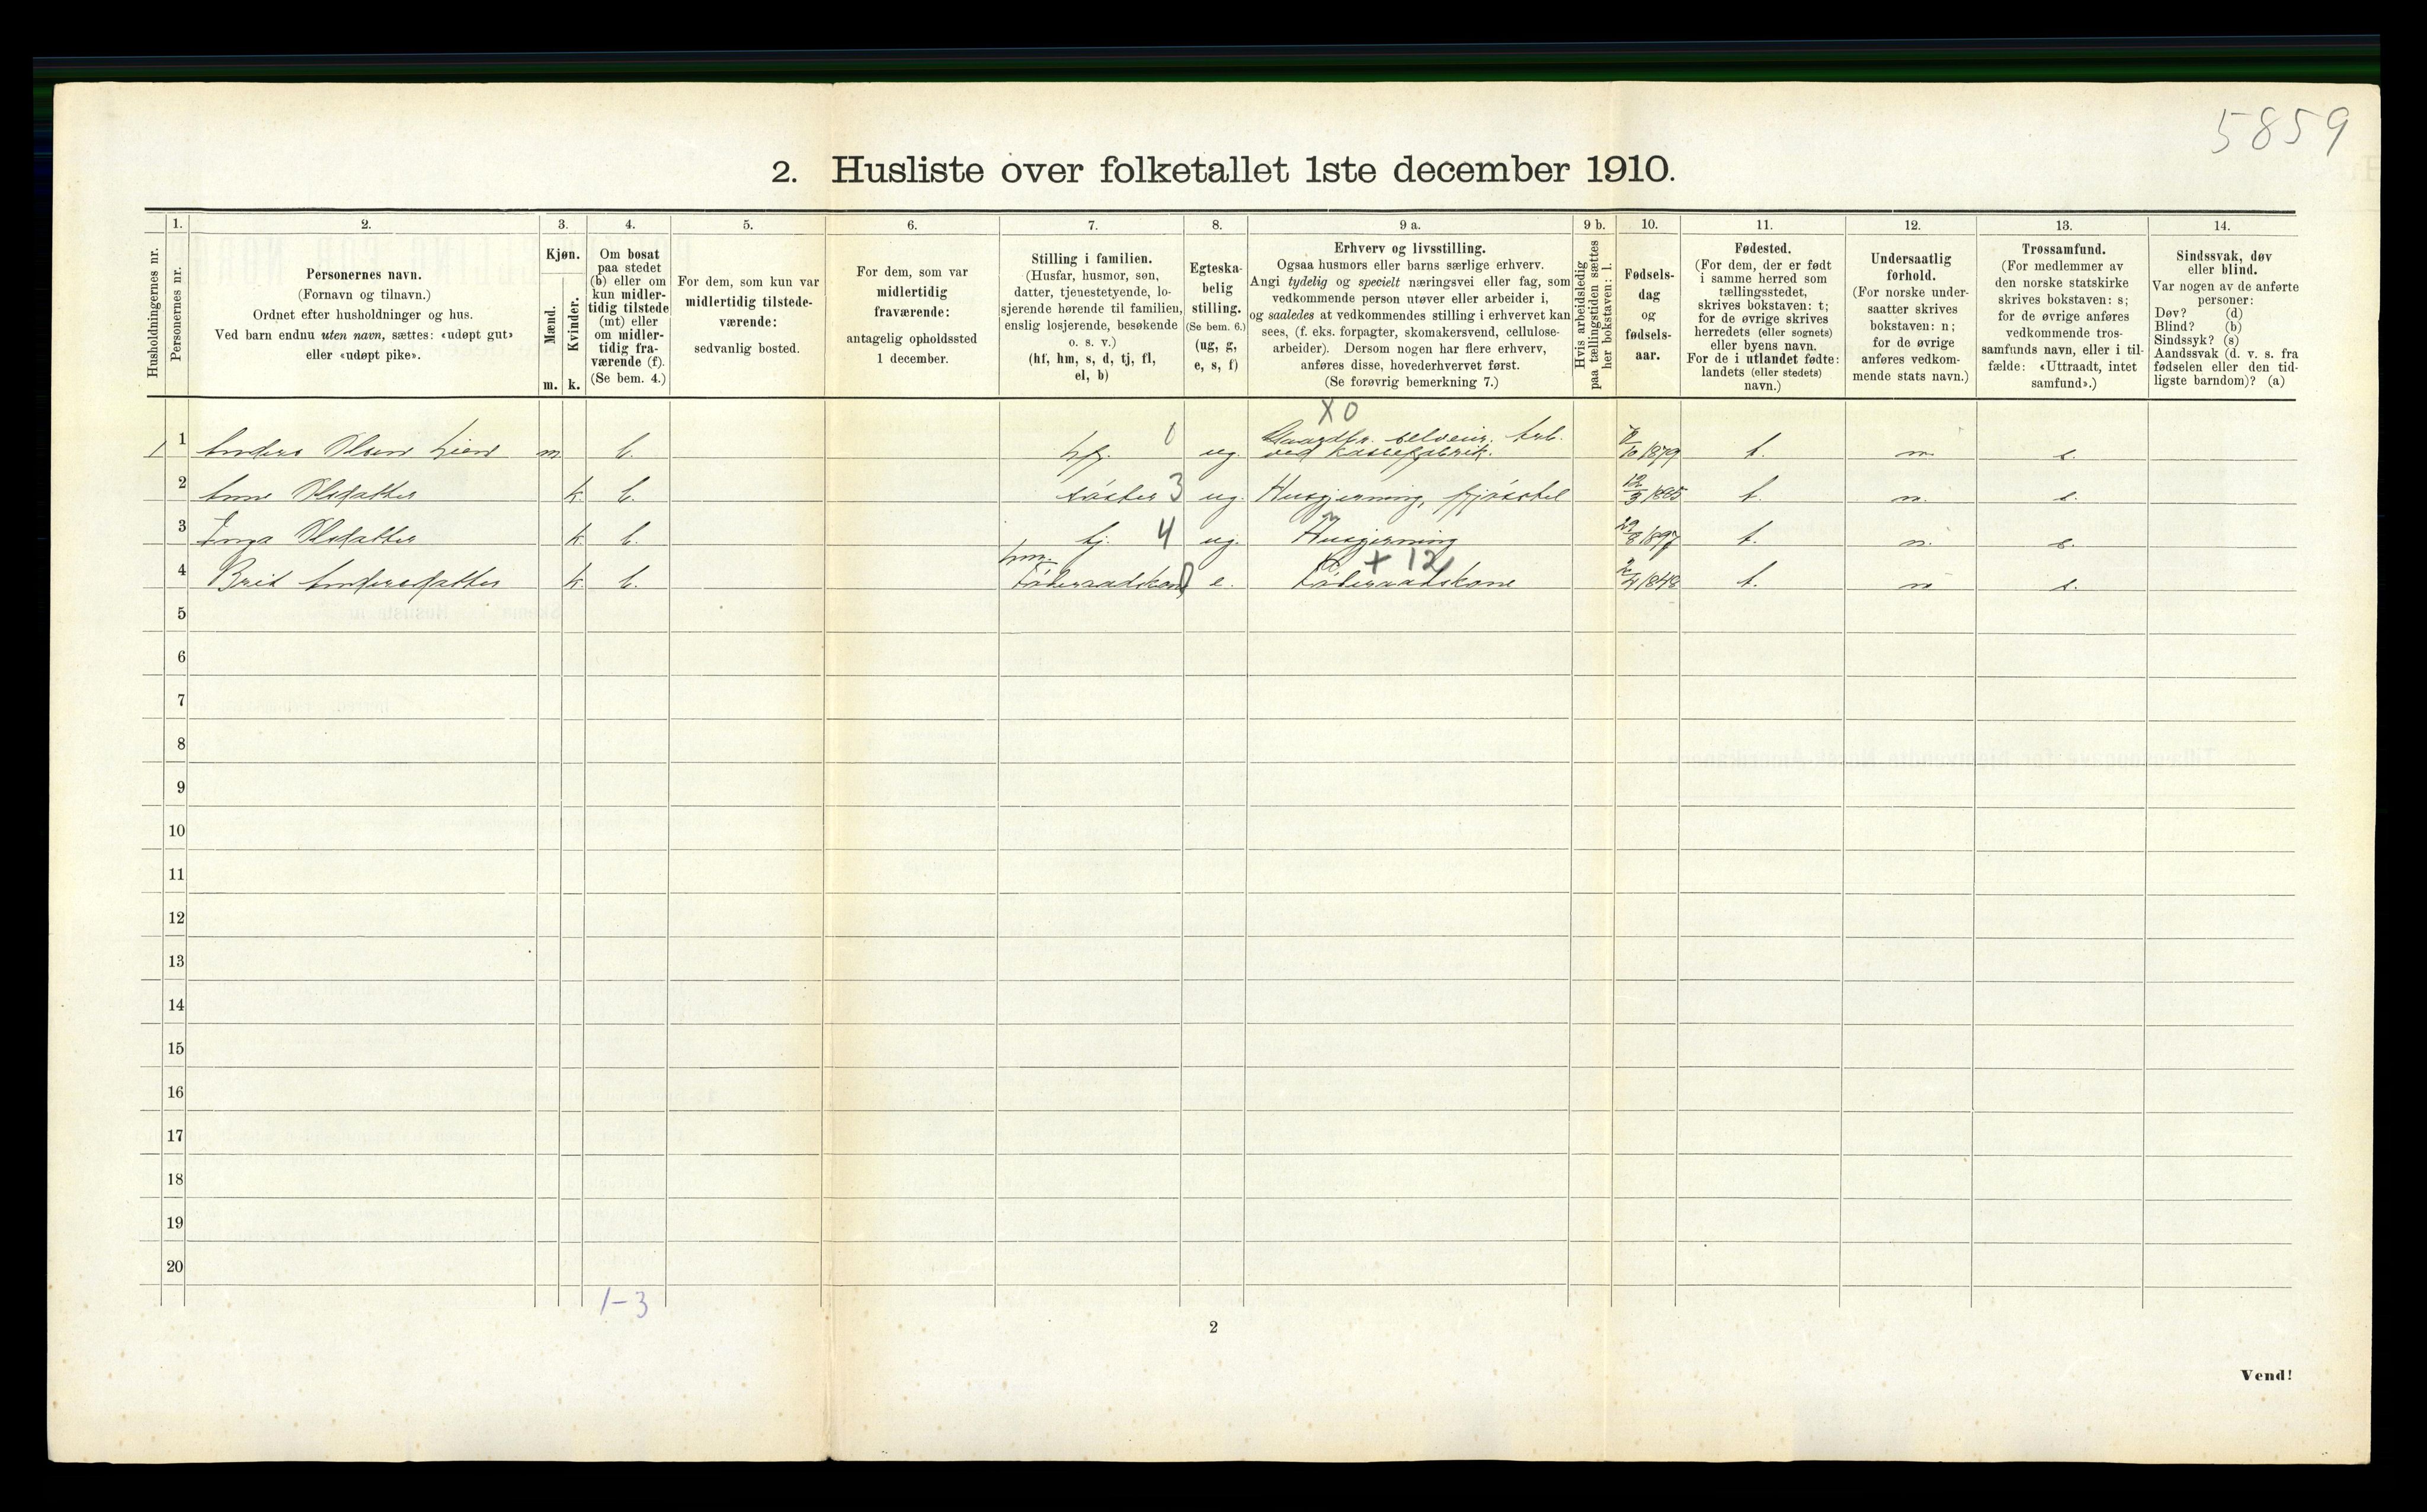 5859
2. Husliste over folketallet 1ste december 1910.
1. 2. 3. 4. 5. 6. 7. 8. 9 a. 9 b. 10. 11. 12. 13. 14.
Husholdningernes nr.
Personernes nr.
Personernes navn.
(Fornavn og tilnavn.)
Ordnet efter husholdninger og hus.
Ved barn endnu uten navn, sættes: «udøpt gut»
eller «udøpt pike».
Kjøn.
Mænd.
Kvinder.
m. k.
Om bosat
paa stedet
(b) eller om
kun midler-
tidig tilstede
(mt) eller
om midler-
tidig fra-
værende (f).
(Se bem. 4.)
For dem, som kun var
midlertidig tilstede-
værende:
sedvanlig bosted.
For dem, som var
midlertidig
fraværende:
antagelig opholdssted
1 december.
Stilling i familien.
(Husfar, husmor, søn,
datter, tjenestetyende, lo-
sjerende hørende til familien,
enslig losjerende, besøkende
o. s. v.)
(hf, hm, s, d, tj, fl,
el, b)
Egteska-
belig
stilling.
(Se bem. 6.)
(ug, g,
e, s, f)
Erhverv og livsstilling.
Ogsaa husmors eller barns særlige erhverv.
Angi tydelig og specielt næringsvei eller fag, som
vedkommende person utøver eller arbeider i,
og saaledes at vedkommendes stilling i erhvervet kan
sees, (f. eks. forpagter, skomakersvend, cellulose-
arbeider). Dersom nogen har flere erhverv,
anføres disse, hovederhvervet først.
(Se forøvrig bemerkning 7.)
Hvis arbeidsledig
paa tællingstiden sættes
her bokstaven: l.
Fødsels-
dag
og
fødsels-
aar.
Fødested.
(For dem, der er født
i samme herred som
tællingsstedet,
skrives bokstaven: t;
for de øvrige skrives
herredets (eller sognets)
eller byens navn.
For de i utlandet fødte:
landets (eller stedets)
navn.)
Undersaatlig
forhold.
(For norske under-
saatter skrives
bokstaven: n;
for de øvrige
anføres vedkom-
mende stats navn.)
Trossamfund.
(For medlemmer av
den norske statskirke
skrives bokstaven: s;
for de øvrige anføres
vedkommende tros-
samfunds navn, eller i til-
fælde: «Uttraadt, intet
samfund».)
Sindssvak, døv
eller blind.
Var nogen av de anførte
personer:
Døv? (d)
Blind? (b)
Sindssyk? (s)
Aandssvak (d. v. s. fra
fødselen eller den tid-
ligste barndom)? (a)
X 0
Gaardbr. selveier. Arb.
1 1 Anders Olsen Lien m b. hf. 0 ug. ved kassefabrik. 1879 t. n. s.
2 Anne Olsdatter k. b. søster 3 ug. Husgjerning, fjøsstel 12/3 1885 t. n. s.
3 Inga Olsdatter k. b. tj. 4 ug. Husgjerning 29/8 1897 t. n. s.
hm. + 12
4 Brit Andersdatter k. b. Føderaadskone e. Føderaadskone 1848 t. n s.
5
6
7
8
9
10
11
12
13
14
15
16
17
18
19
20
1-3
2
Vend!